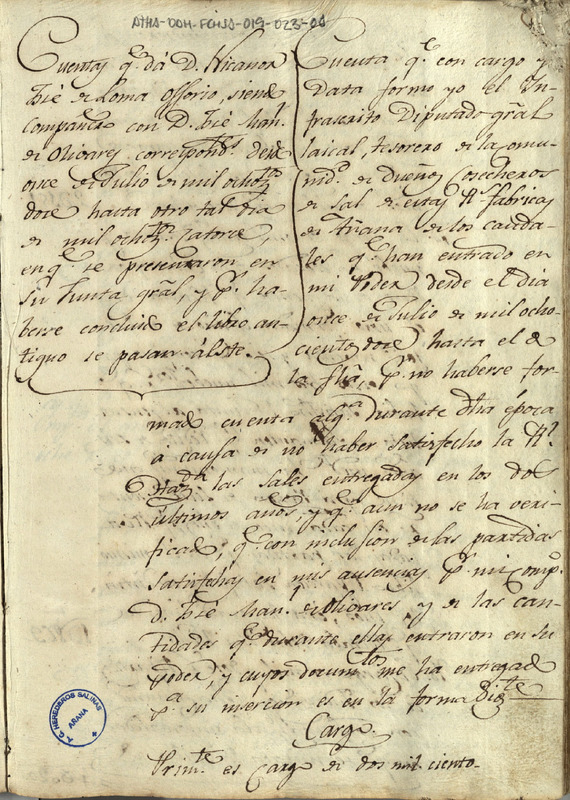 ATHA-DAH-FCHSA-019-023-04
Cuentas q.e dá D. Nicanor
José de Loma Ossorio, siendo
compañero con D. José Man.l
de Olivares, correspond.s desde
once de Julio de mil ochoz.s
doce hasta otro tal dia
de mil ochoz.s catorce,
en q.e se presentaron en
su Junta gral, y p.r ha-
berse concluido el libro an-
tiguo se pasan á éste.
Cuenta q.e con cargo y
Data formo yo el In-
frascrito Diputado gral
laical, tesorero de la comu-
nid.d de Dueños Coseheros
de sal de estas R.s fabricas
de Añana de los cauda-
les q.e han entrado en
mi Poder desde el dia
once de Julio de mil ocho-
cientos doce hasta el de
la fha, p.r no haberse for-
mado cuenta alg.a durante dha época
á causa de no haber satisfecho la R.l
Haz.da las sales entregadas en los dos
últimos años, y q.e aun no se ha veri-
ficado, q.e con inclusion de las partidas
satisfechas en mis ausencias p.r mi comp.o
D. José Man.l de Olivares y de las can-
tidades q.e durante ellas entraron en su
poder, y cuyos docum.tos me ha entregado
p.a su insercion es en la forma sig.te
Cargo
Prim.te es cargo de dos mil ciento-
A. C. HEREDEROS SALINAS
AÑANA